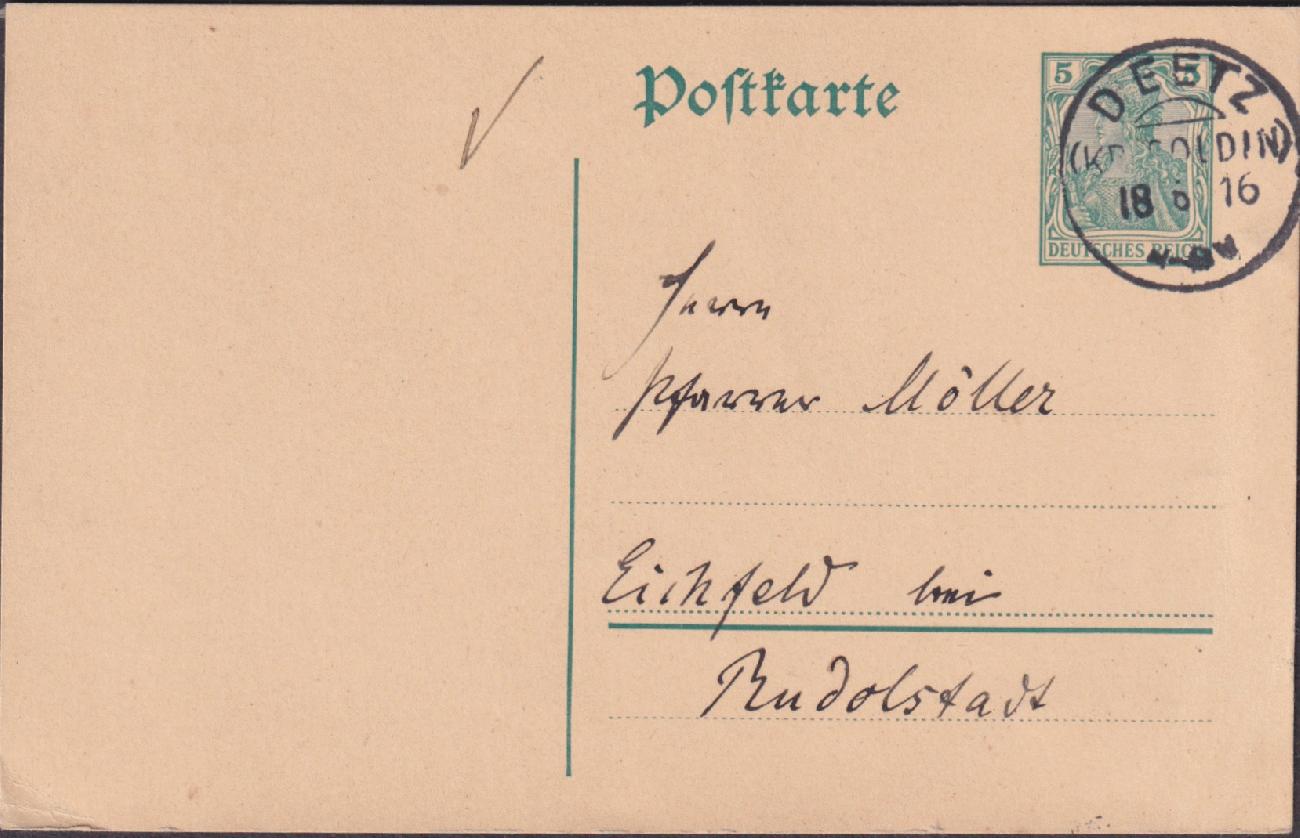 Postkarte
5 5
DEUTSCHES REICH
DEETZ
(KR. SOLDIN)
18 16
Herrn
Pfarrer Möller
Eichfeld bei
Rudolstadt